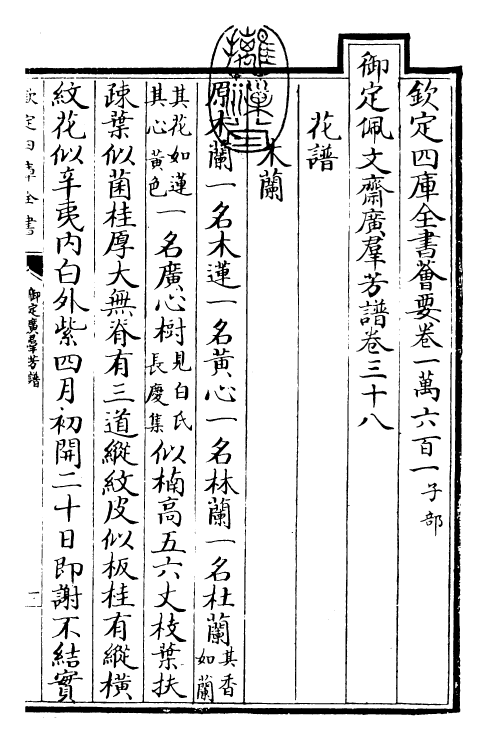 欽定四庫全書薈要卷一萬六百一 子部
御定佩文齋廣羣芳譜卷三十八
花譜
木蘭
原木蘭一名木蓮一名黃心一名林蘭一名杜蘭其香如蘭
其花如蓮其心黃色一名廣心樹見白氏長慶集似楠高五六丈枝葉扶
疎葉似菌桂厚大無脊有三道縱紋皮似板桂有縱橫
紋花似辛夷内白外紫四月初開二十日即謝不結實
欽定四庫全書
御定廣羣芳譜